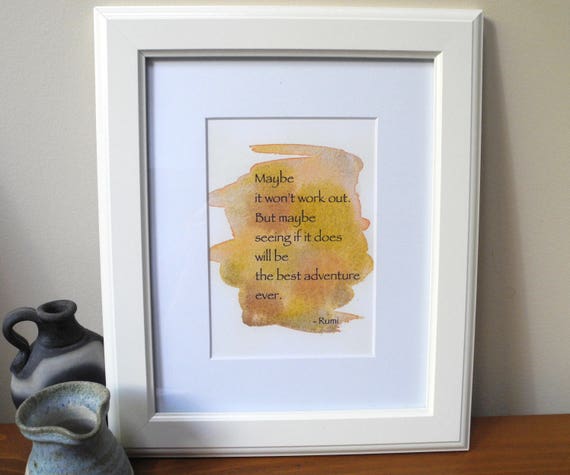 Maybe
it won't work out.
But maybe
seeing if it does
will be
the best adventure
ever.
- Rumi